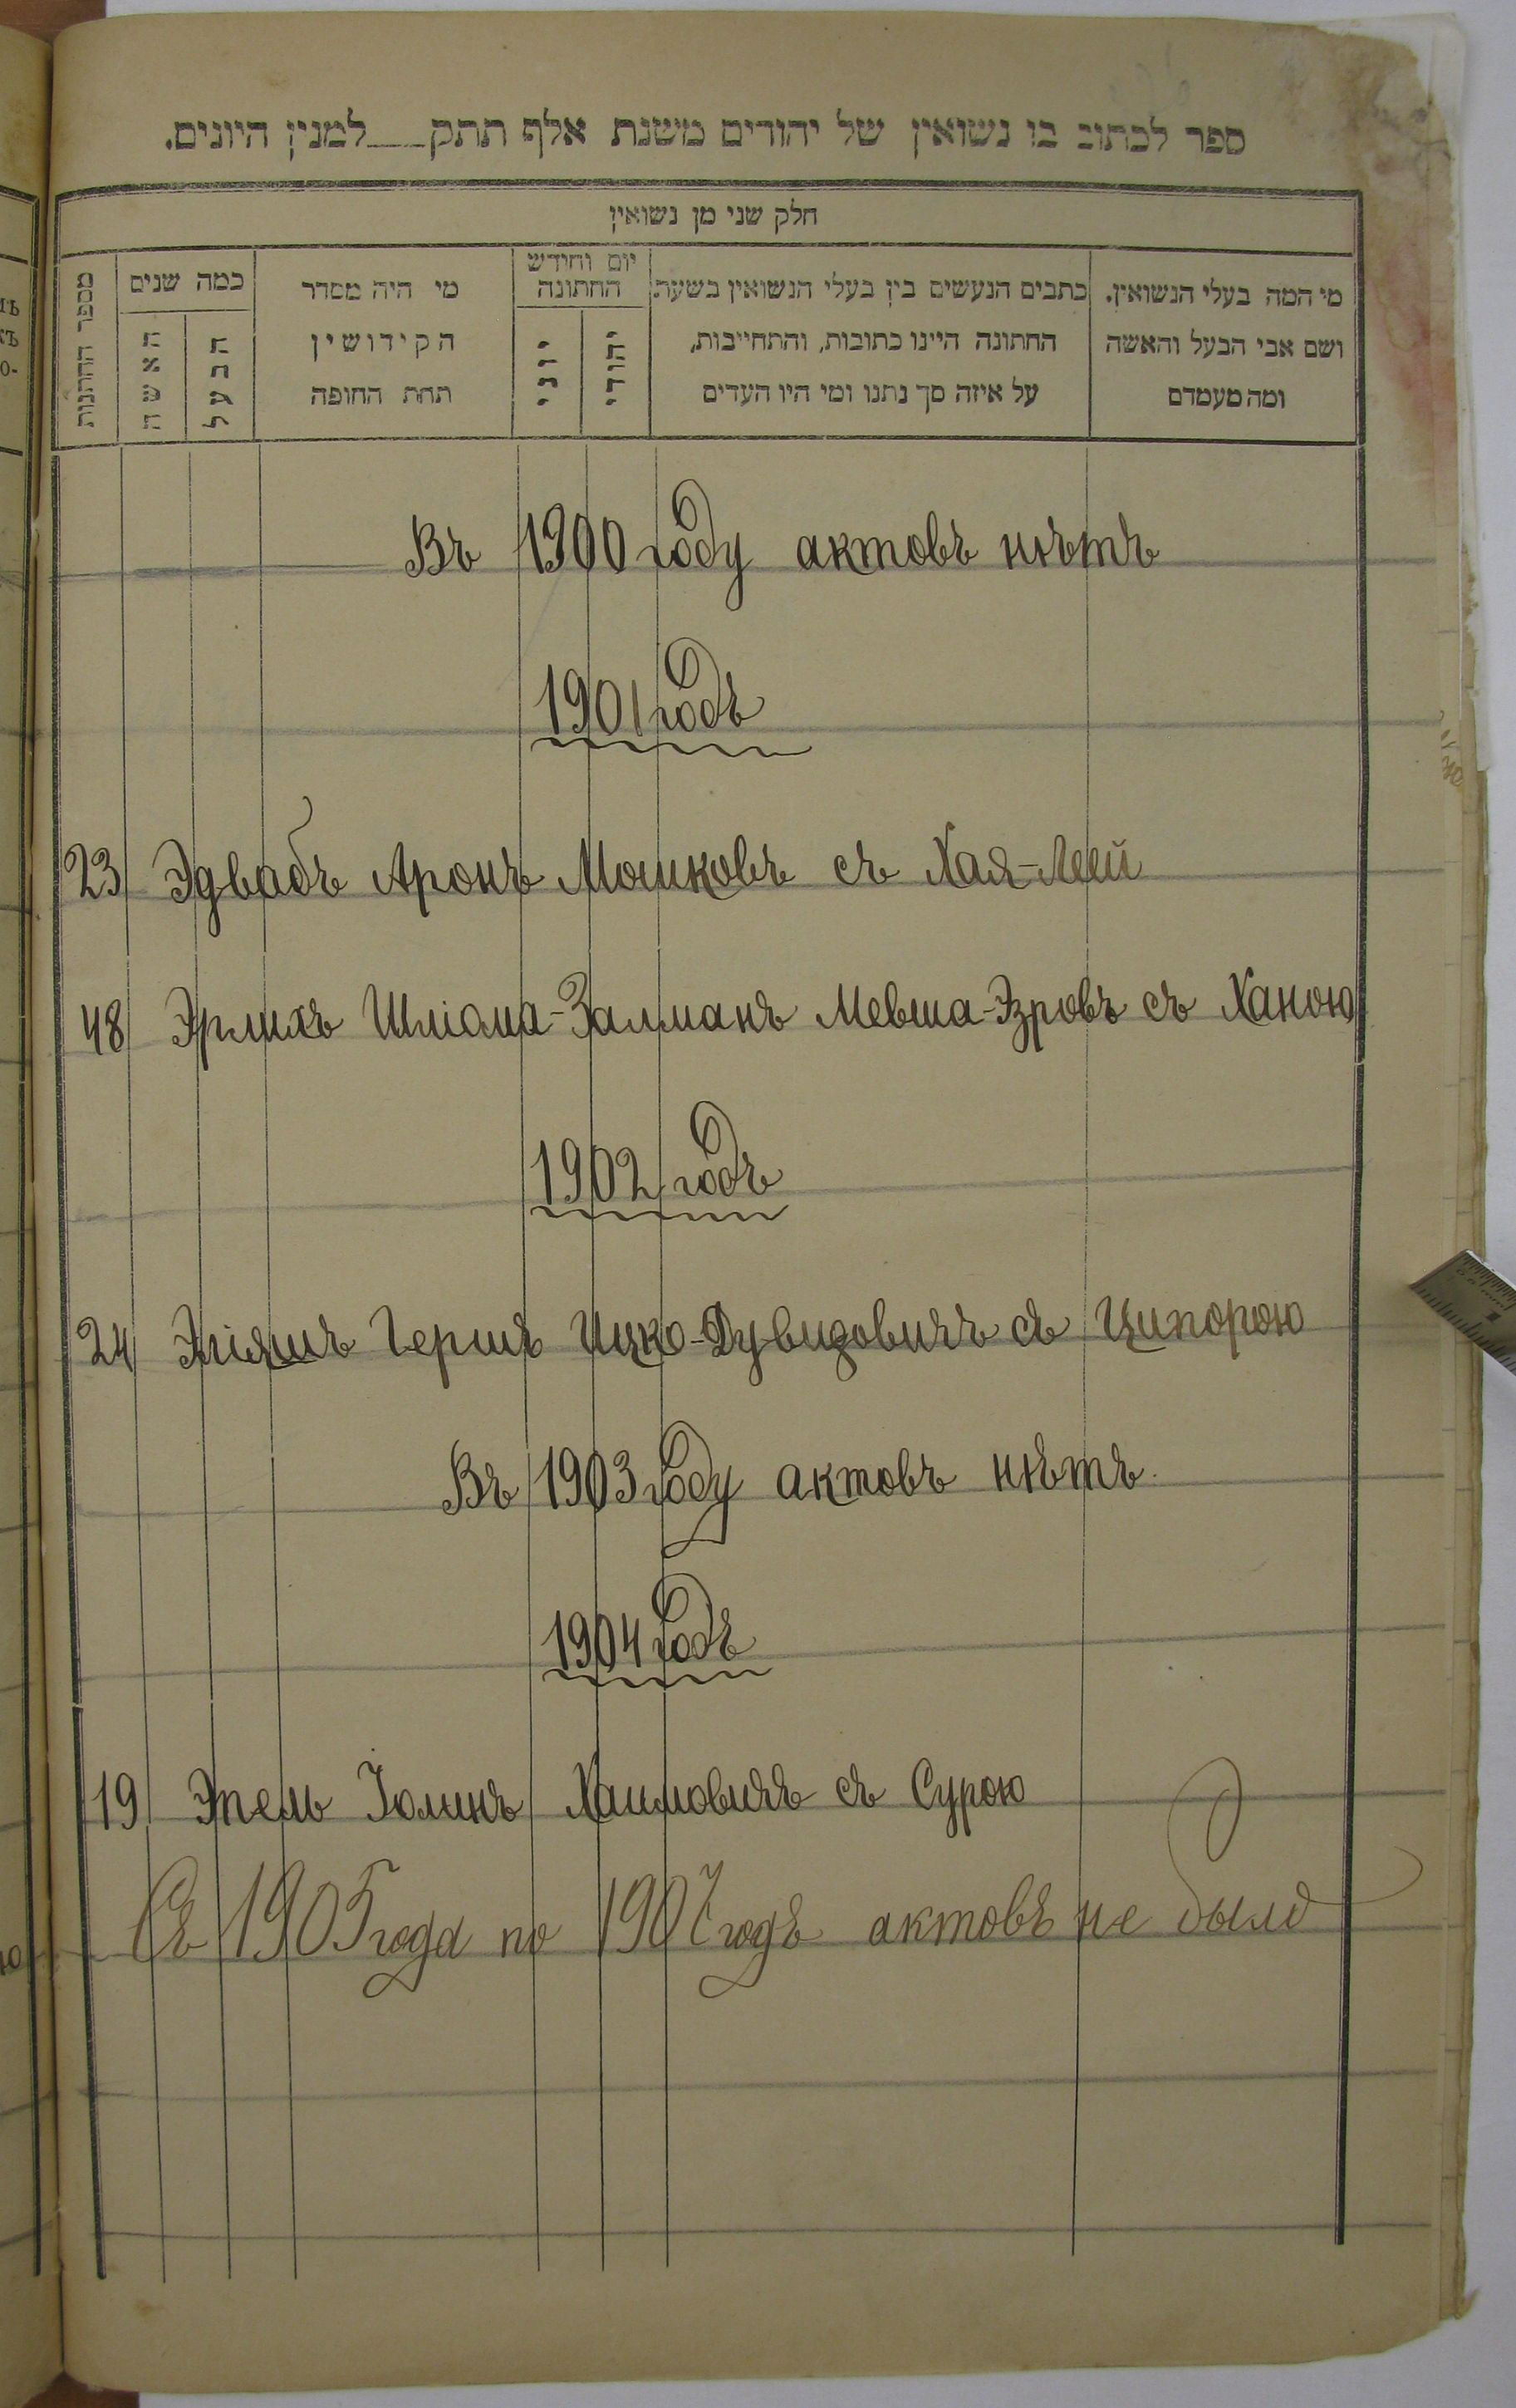 ספר לכתוב בו נשואין של יהודים משנת אלף תתק___למנין היונים.
חלק שני מן נשואין
מי המה בעלי הנשואין.
ושם אבי הבעל והאשה
ומה מעמדם
כתבים הנעשים בין בעלי הנשואין בשעת
החתונה היינו כתובות, והתחייבות,
על איזה סך נתנו ומי היו העדים
יום וחידש
החתונה
יהודי
יוני
מי היה מסדר
הקידושין
תחת החופה
כמה שנים
הבעל
האשה
מספר החתנות
Въ 1900 году актовъ нѣтъ
1901 годъ
23 Эдвабъ Аронъ Мошковъ съ Хая-Леей
48 Эрлихъ Шліома-Залманъ Мевша-Эзровъ съ Ханою
1902 годъ
24 Эліяшъ Гершъ Ицко-Дувидовичъ съ Ципорою
Въ 1903 году актовъ нѣтъ.
1904 годъ
19 Эпель Іолинъ Хаимовичъ съ Сурою
Съ 1905 года по 1907 годъ актовъ не было